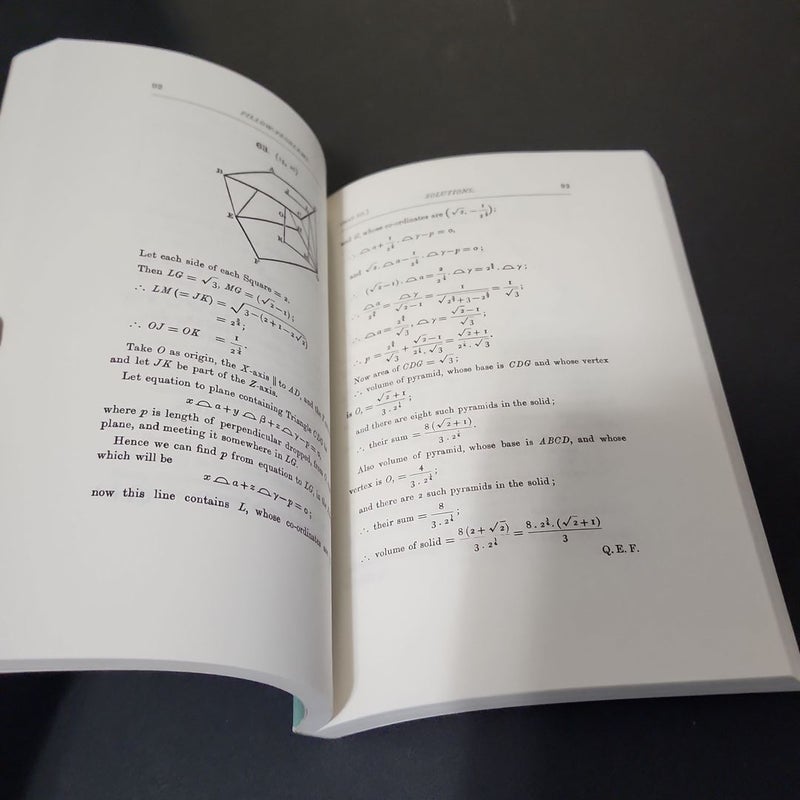 92
PILLOW-PROBLEMS.
63. (14, 20)
D
A
E
G
K
F
Let each side of each Square = 2.
Then LG = √3, MG = (√2−1);
∴ LM (= JK) = √3−(2+1−2√2)
= 2^¾;
∴ OJ = OK = 1/2^¼.
Take O as origin, the X-axis ∥ to AD, and the
and let JK be part of the Z-axis.
Let equation to plane containing Triangle CDG be
x ⌓ α + y ⌓ β + z ⌓ γ − p = 0,
where p is length of perpendicular dropped, from
plane, and meeting it somewhere in LG.
Hence we can find p from equation to LG, in the
which will be
x ⌓ α + z ⌓ γ − p = 0;
now this line contains L, whose co-ordinates are
SOLUTIONS.
93
and G, whose co-ordinates are (√2, −1/2^¼);
∴ ⌓ α + 1/2^¼ . ⌓ γ − p = 0,
and √2 . ⌓ α − 1/2^¼ . ⌓ γ − p = 0;
∴ (√2−1) . ⌓ α = 2/2^¼ . ⌓ γ = 2^¾ . ⌓ γ;
∴ ⌓ α/2^¾ = ⌓ γ/√2−1 = 1/√2^{3/2}+3−2^{3/2} = 1/√3;
∴ ⌓ α = 2^¾/√3, ⌓ γ = √2−1/√3;
∴ p = 2^¾/√3 + √2−1/2^¼ . √3 = √2+1/2^¼ . √3.
Now area of CDG = √3;
∴ volume of pyramid, whose base is CDG and whose vertex
is O, = √2+1/3 . 2^¼;
and there are eight such pyramids in the solid;
∴ their sum = 8(√2+1)/3 . 2^¼.
Also volume of pyramid, whose base is ABCD, and whose
vertex is O, = 4/3 . 2^¼;
and there are 2 such pyramids in the solid;
∴ their sum = 8/3 . 2^¼;
∴ volume of solid = 8(2+√2)/3 . 2^¼ = 8 . 2^¼ . (√2+1)/3
Q. E. F.